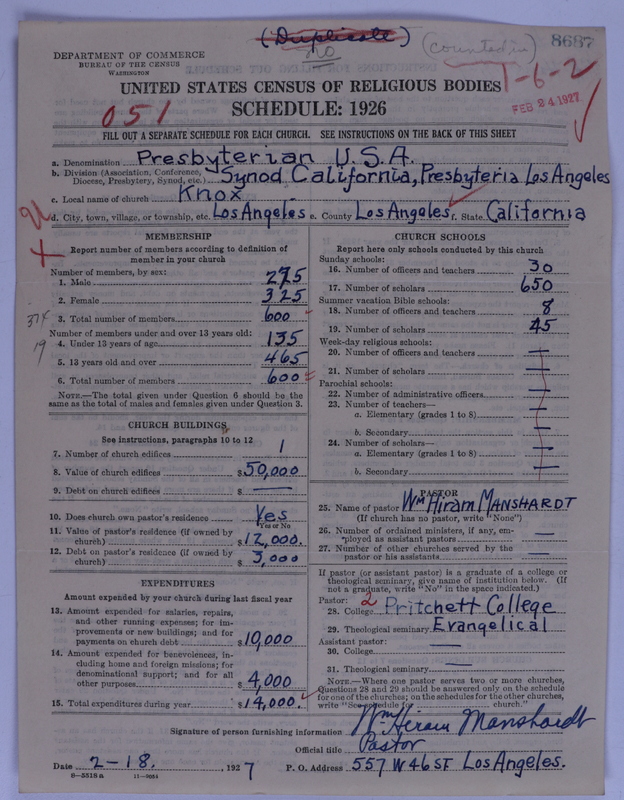 (Duplicate) (counted in) 8687
no
DEPARTMENT OF COMMERCE
BUREAU OF THE CENSUS
WASHINGTON
1-6-2
UNITED STATES CENSUS OF RELIGIOUS BODIES
051 SCHEDULE: 1926 FEB 24 1927
FILL OUT A SEPARATE SCHEDULE FOR EACH CHURCH. SEE INSTRUCTIONS ON THE BACK OF THIS SHEET
a. Denomination Presbyterian U.S.A.
b. Division (Association, Conference, Diocese, Presbytery, Synod, etc.) Synod California, Presbyteria Los Angeles
c. Local name of church Knox
d. City, town, village, or township, etc. Los Angeles e. County Los Angeles f. State California
MEMBERSHIP
Report number of members according to definition of
member in your church
Number of members, by sex:
1. Male 275
2. Female 325
3. Total number of members 600
374
Number of members under and over 13 years old:
4. Under 13 years of age 135
19
5. 13 years old and over 465
6. Total number of members 600
NOTE.—The total given under Question 6 should be
same as the total of males and females given under Question 3.
CHURCH BUILDINGS
See instructions, paragraphs 10 to 12
7. Number of church edifices 1
8. Value of church edifices $ 50,000
9. Debt on church edifices $ —
10. Does church own pastor's residence Yes
Yes or No
11. Value of pastor's residence (if owned by
church) $ 12,000.
12. Debt on pastor's residence (if owned by
church) $ 3,000
EXPENDITURES
Amount expended by your church during last fiscal year
13. Amount expended for salaries, repairs,
and other running expenses; for im-
provements or new buildings; and for
payments on church debt $ 10,000
14. Amount expended for benevolences, in-
cluding home and foreign missions; for
denominational support; and for all
other purposes $ 4,000
15. Total expenditures during year $ 14,000.
CHURCH SCHOOLS
Report here only schools conducted by this church
Sunday schools:
16. Number of officers and teachers 30
17. Number of scholars 650
Summer vacation Bible schools:
18. Number of officers and teachers 8
19. Number of scholars 45
Week-day religious schools:
20. Number of officers and teachers —
21. Number of scholars —
Parochial schools:
22. Number of administrative officers —
23. Number of teachers—
a. Elementary (grades 1 to 8) —
b. Secondary —
24. Number of scholars—
a. Elementary (grades 1 to 8) —
b. Secondary —
PASTOR
25. Name of pastor Wm Hiram MANSHARDT
(If church has no pastor, write "None")
26. Number of ordained ministers, if any, em-
ployed as assistant pastors —
27. Number of other churches served by the
pastor or his assistants —
If pastor (or assistant pastor) is a graduate of a college or
theological seminary, give name of institution below. (If
not a graduate, write "No" in the space indicated.)
Pastor: 2
28. College Pritchett College
29. Theological seminary Evangelical
Assistant pastor:
30. College —
31. Theological seminary —
NOTE.—Where one pastor serves two or more churches,
Questions 28 and 29 should be answered only on the schedule
for one of the churches; on the schedules for the other churches,
write "See schedule for church."
Signature of person furnishing information Wm Hiram Manshardt
Official title Pastor
Date 2-18. 1927 P. O. Address 557 W 46 St Los Angeles.
8—5518 a 11—9034